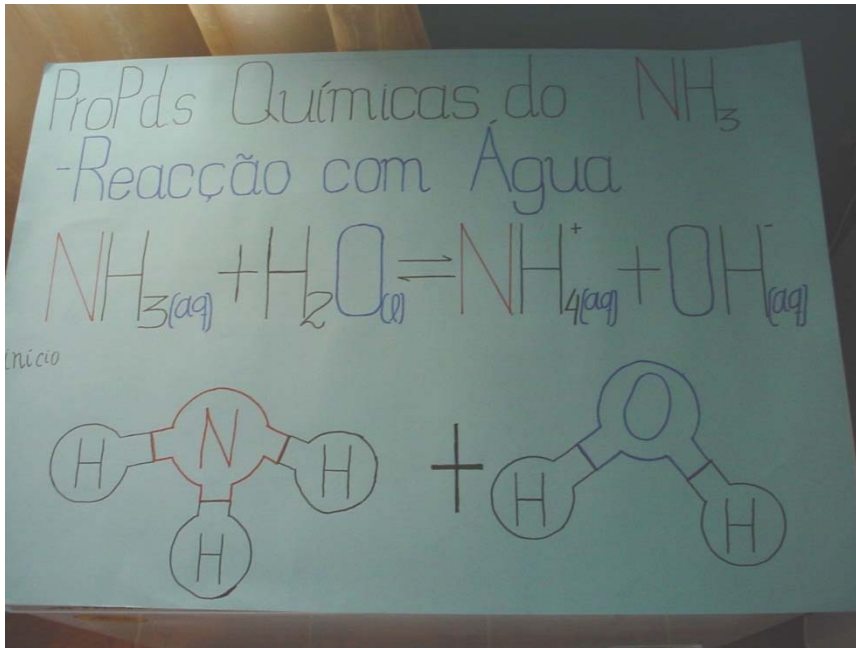 ProPds Químicas do NH₃
-Reacção com Água
NH₃(aq) + H₂O(l) ⇌ NH₄⁺(aq) + OH⁻(aq)
inicio
H N H + H O H
H